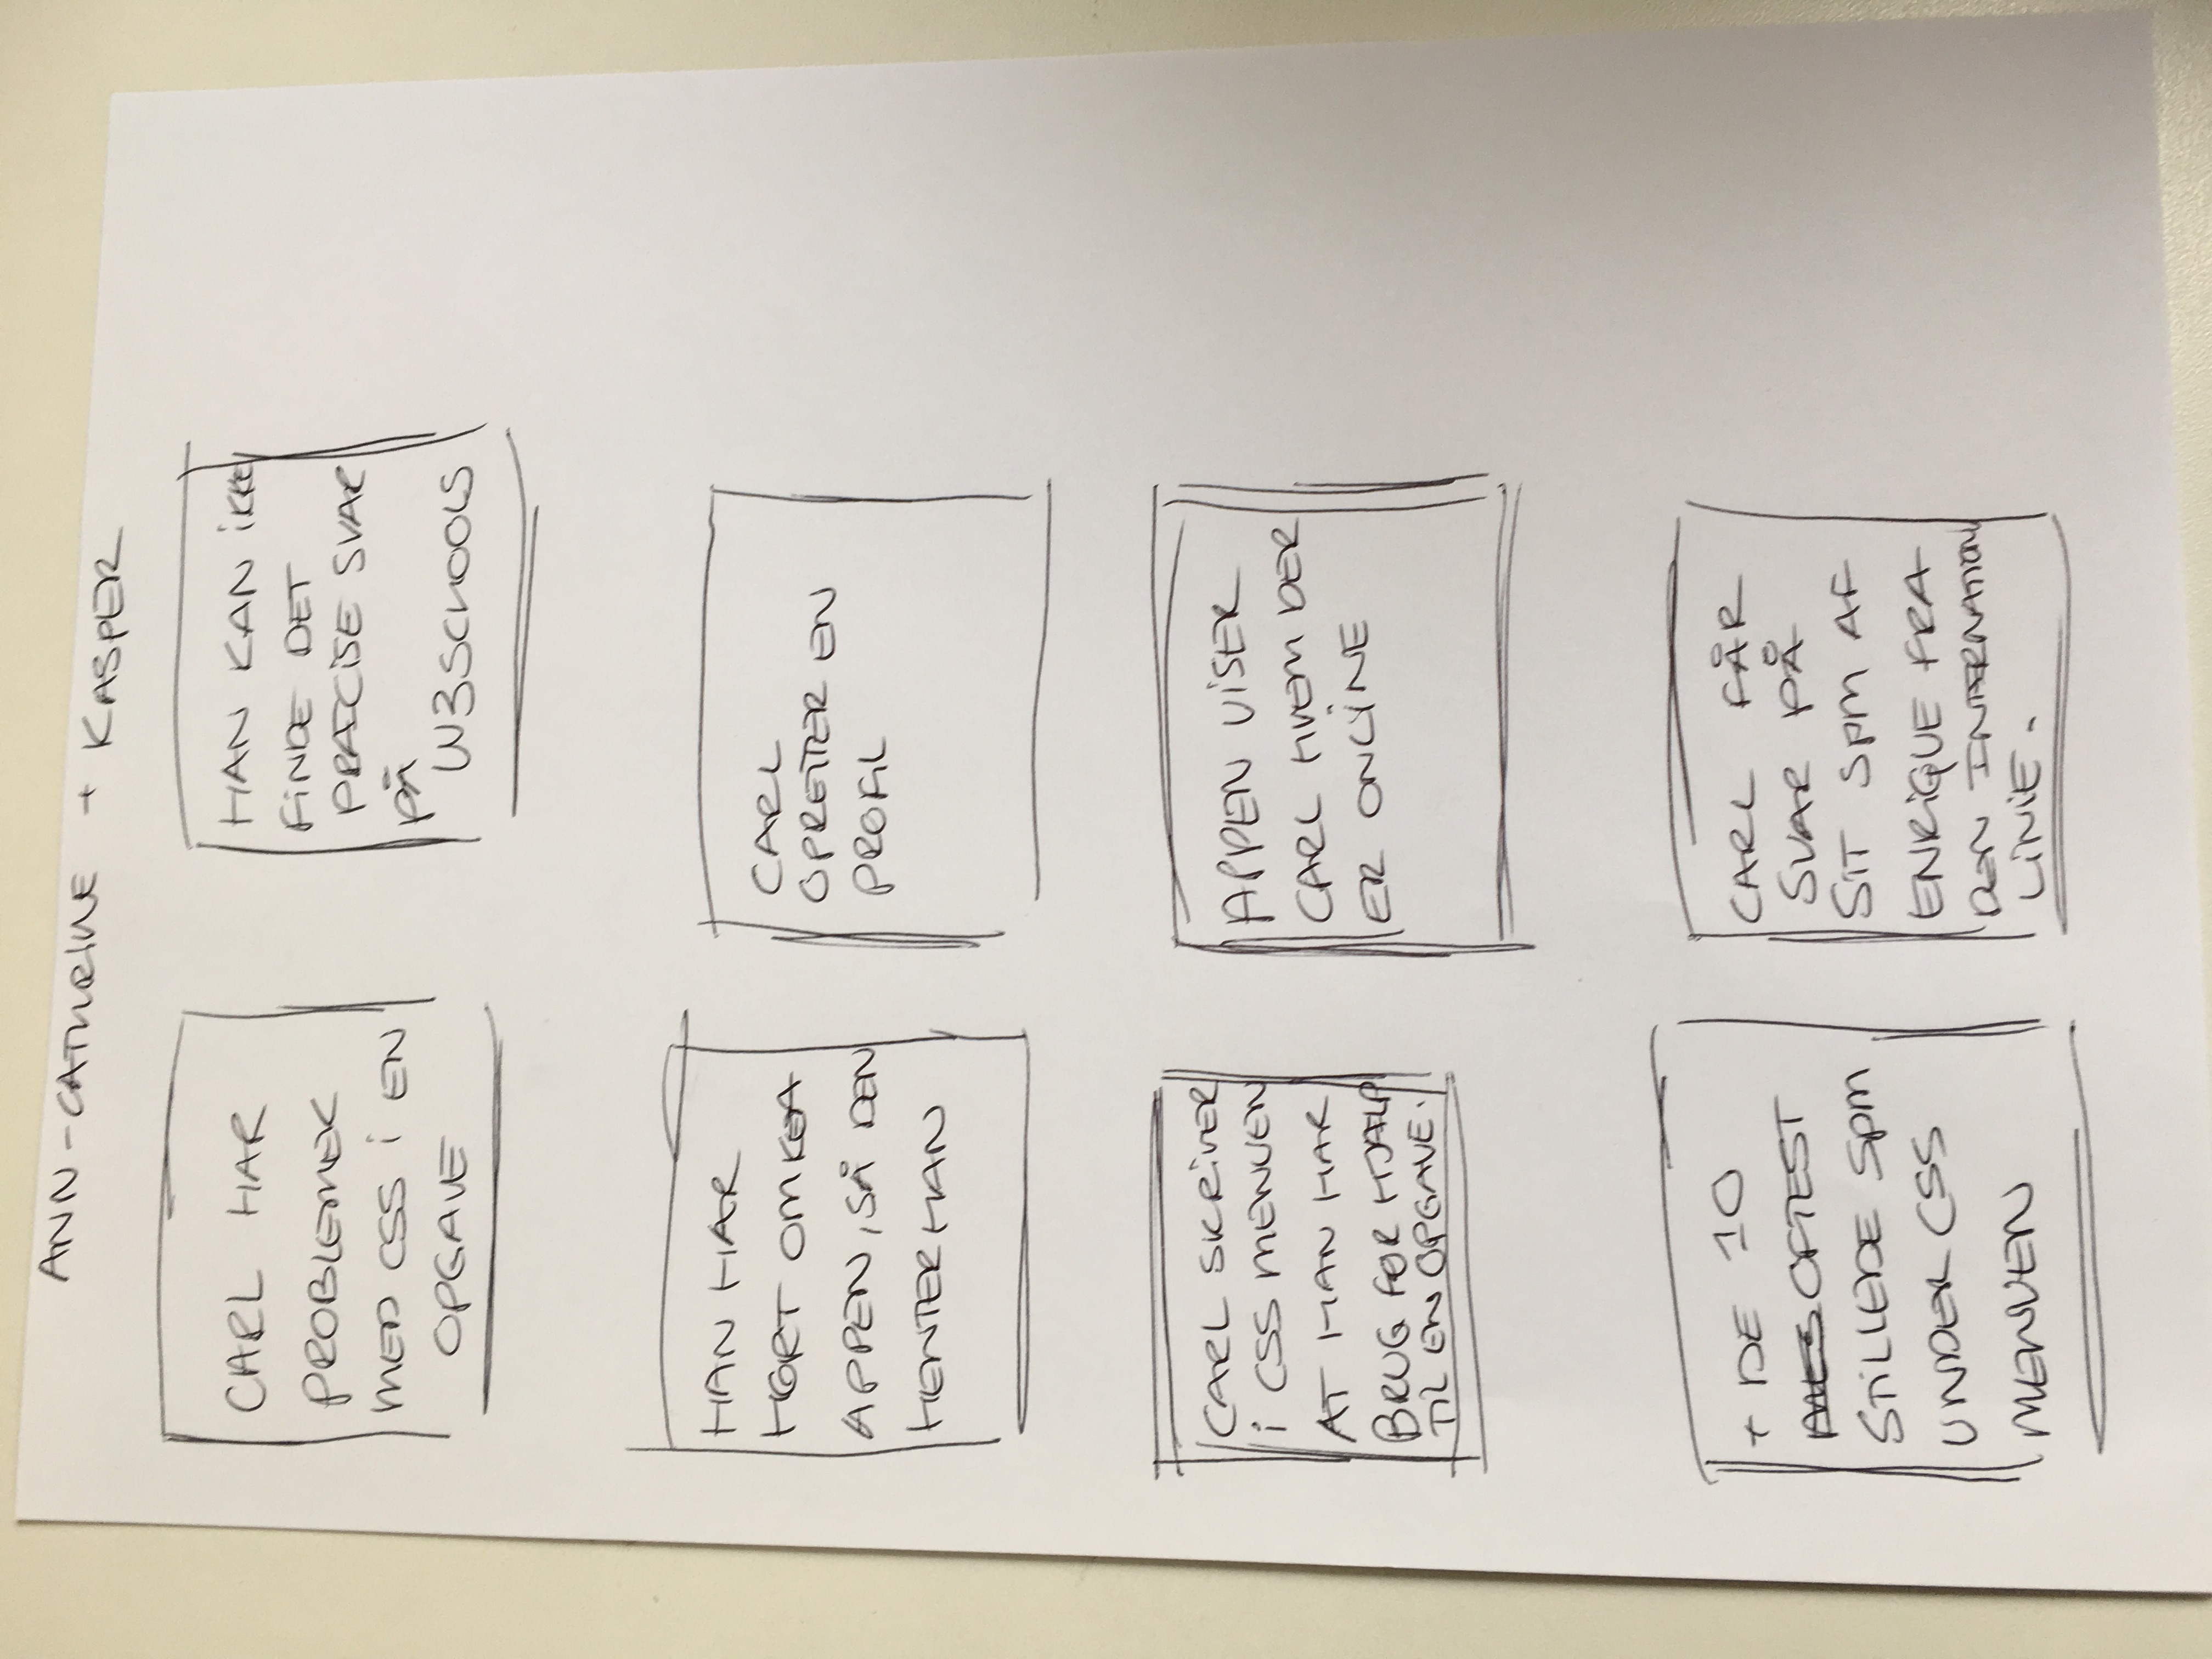 ANN-CATHRINE + KASPER
CARL HAR
PROBLEMER
MED CSS i EN
OPGAVE
HAN KAN iKKE
FiNDE DET
PRÆCiSE SVAR
PÅ
W3SCHOOLS
HAN HAR
HØRT OM KEA
APPEN, SÅ DEN
HENTER HAN
CARL
OPRETTER EN
PROFiL
CARL SKRiVER
i CSS MENUEN
AT HAN HAR
BRUG FOR HJÆLP
TIL EN OPGAVE.
APPEN ViSER
CARL HVEM DER
ER ONLiNE
+ DE 10
OFTEST
STiLLEDE SPM
UNDER CSS
MENUEN
CARL FÅR
SVAR PÅ
SiT SPM AF
ENRiQUE FRA
DEN INTERNATION
LiNiE.